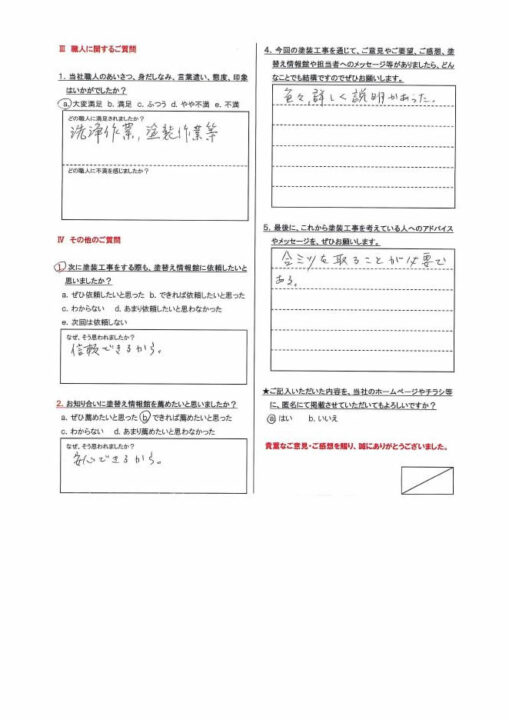 Ⅲ 職人に関するご質問
1. 当社職人のあいさつ、身だしなみ、言葉遣い、態度、印象
はいかがでしたか?
a. 大変満足 b. 満足 c. ふつう d. やや不満 e. 不満
どの職人に満足されましたか?
洗浄作業、塗装作業等
どの職人に不満を感じましたか?
Ⅳ その他のご質問
1. 次に塗装工事をする際も、塗替え情報館に依頼したいと
思いましたか?
a. ぜひ依頼したいと思った b. できれば依頼したいと思った
c. わからない d. あまり依頼したいと思わなかった
e. 次回は依頼しない
なぜ、そう思われましたか?
信頼できるから。
2. お知り合いに塗替え情報館を薦めたいと思いましたか?
a. ぜひ薦めたいと思った b できれば薦めたいと思った
c. わからない d. あまり薦めたいと思わなかった
なぜ、そう思われましたか?
安心できるから。
4. 今回の塗装工事を通じて、ご意見やご要望、ご感想、塗
替え情報館や担当者へのメッセージ等がありましたら、どん
なことでも結構ですのでぜひお願いします。
色々詳しく説明があった。
5. 最後に、これから塗装工事を考えている人へのアドバイス
やメッセージを、ぜひお願いします。
合ミツを取ることが必要で
ある。
★ご記入いただいた内容を、当社のホームページやチラシ等
に、匿名にて掲載させていただいてもよろしいですか?
a はい b. いいえ
貴重なご意見・ご感想を賜り、誠にありがとうございました。